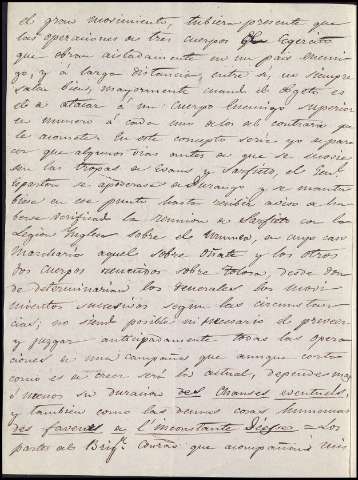 el gran movimiento, tubiera presente que
las operaciones de tres cuerpos de Egército
que obran aisladamente en un pais enemi
go, y á larga distancia entre si, no siempre
salen bien, mayormente cuando el objeto es
el de atacar á un cuerpo enemigo superior
en numero á cada uno de los del contrario que
le acomete. En este concepto seria yo de pare
cer que algunos dias antes de que se movie
sen las tropas de Evans y Sarsfield, el Gene
Espartero se apoderase de Durango y se mantu
biese en ese punto hasta recibir aviso de ha
berse verificado la reunion de Sarsfield con la
Legion Inglesa sobre el en cuyo caso
Marcharia aquel sobre Oñate y los otros
dos cuerpos reunidos sobre Tolosa, desde don
de determinarian los Generales los movi
mientos sucesivos segun las circunstan
cias; no siendo posible ni necesario el preveer
y juzgar anticipadamente todas las opera
ciones de una campaña que aunque corta
como es de creer será la actual, depende mas
ó menos su duracion des chanses eventuels,
y tambien como las demas cosas humanas
des faveurs de l'inconstante Déesse = Los
partes del Brigr. Conrad que acompañan á mis